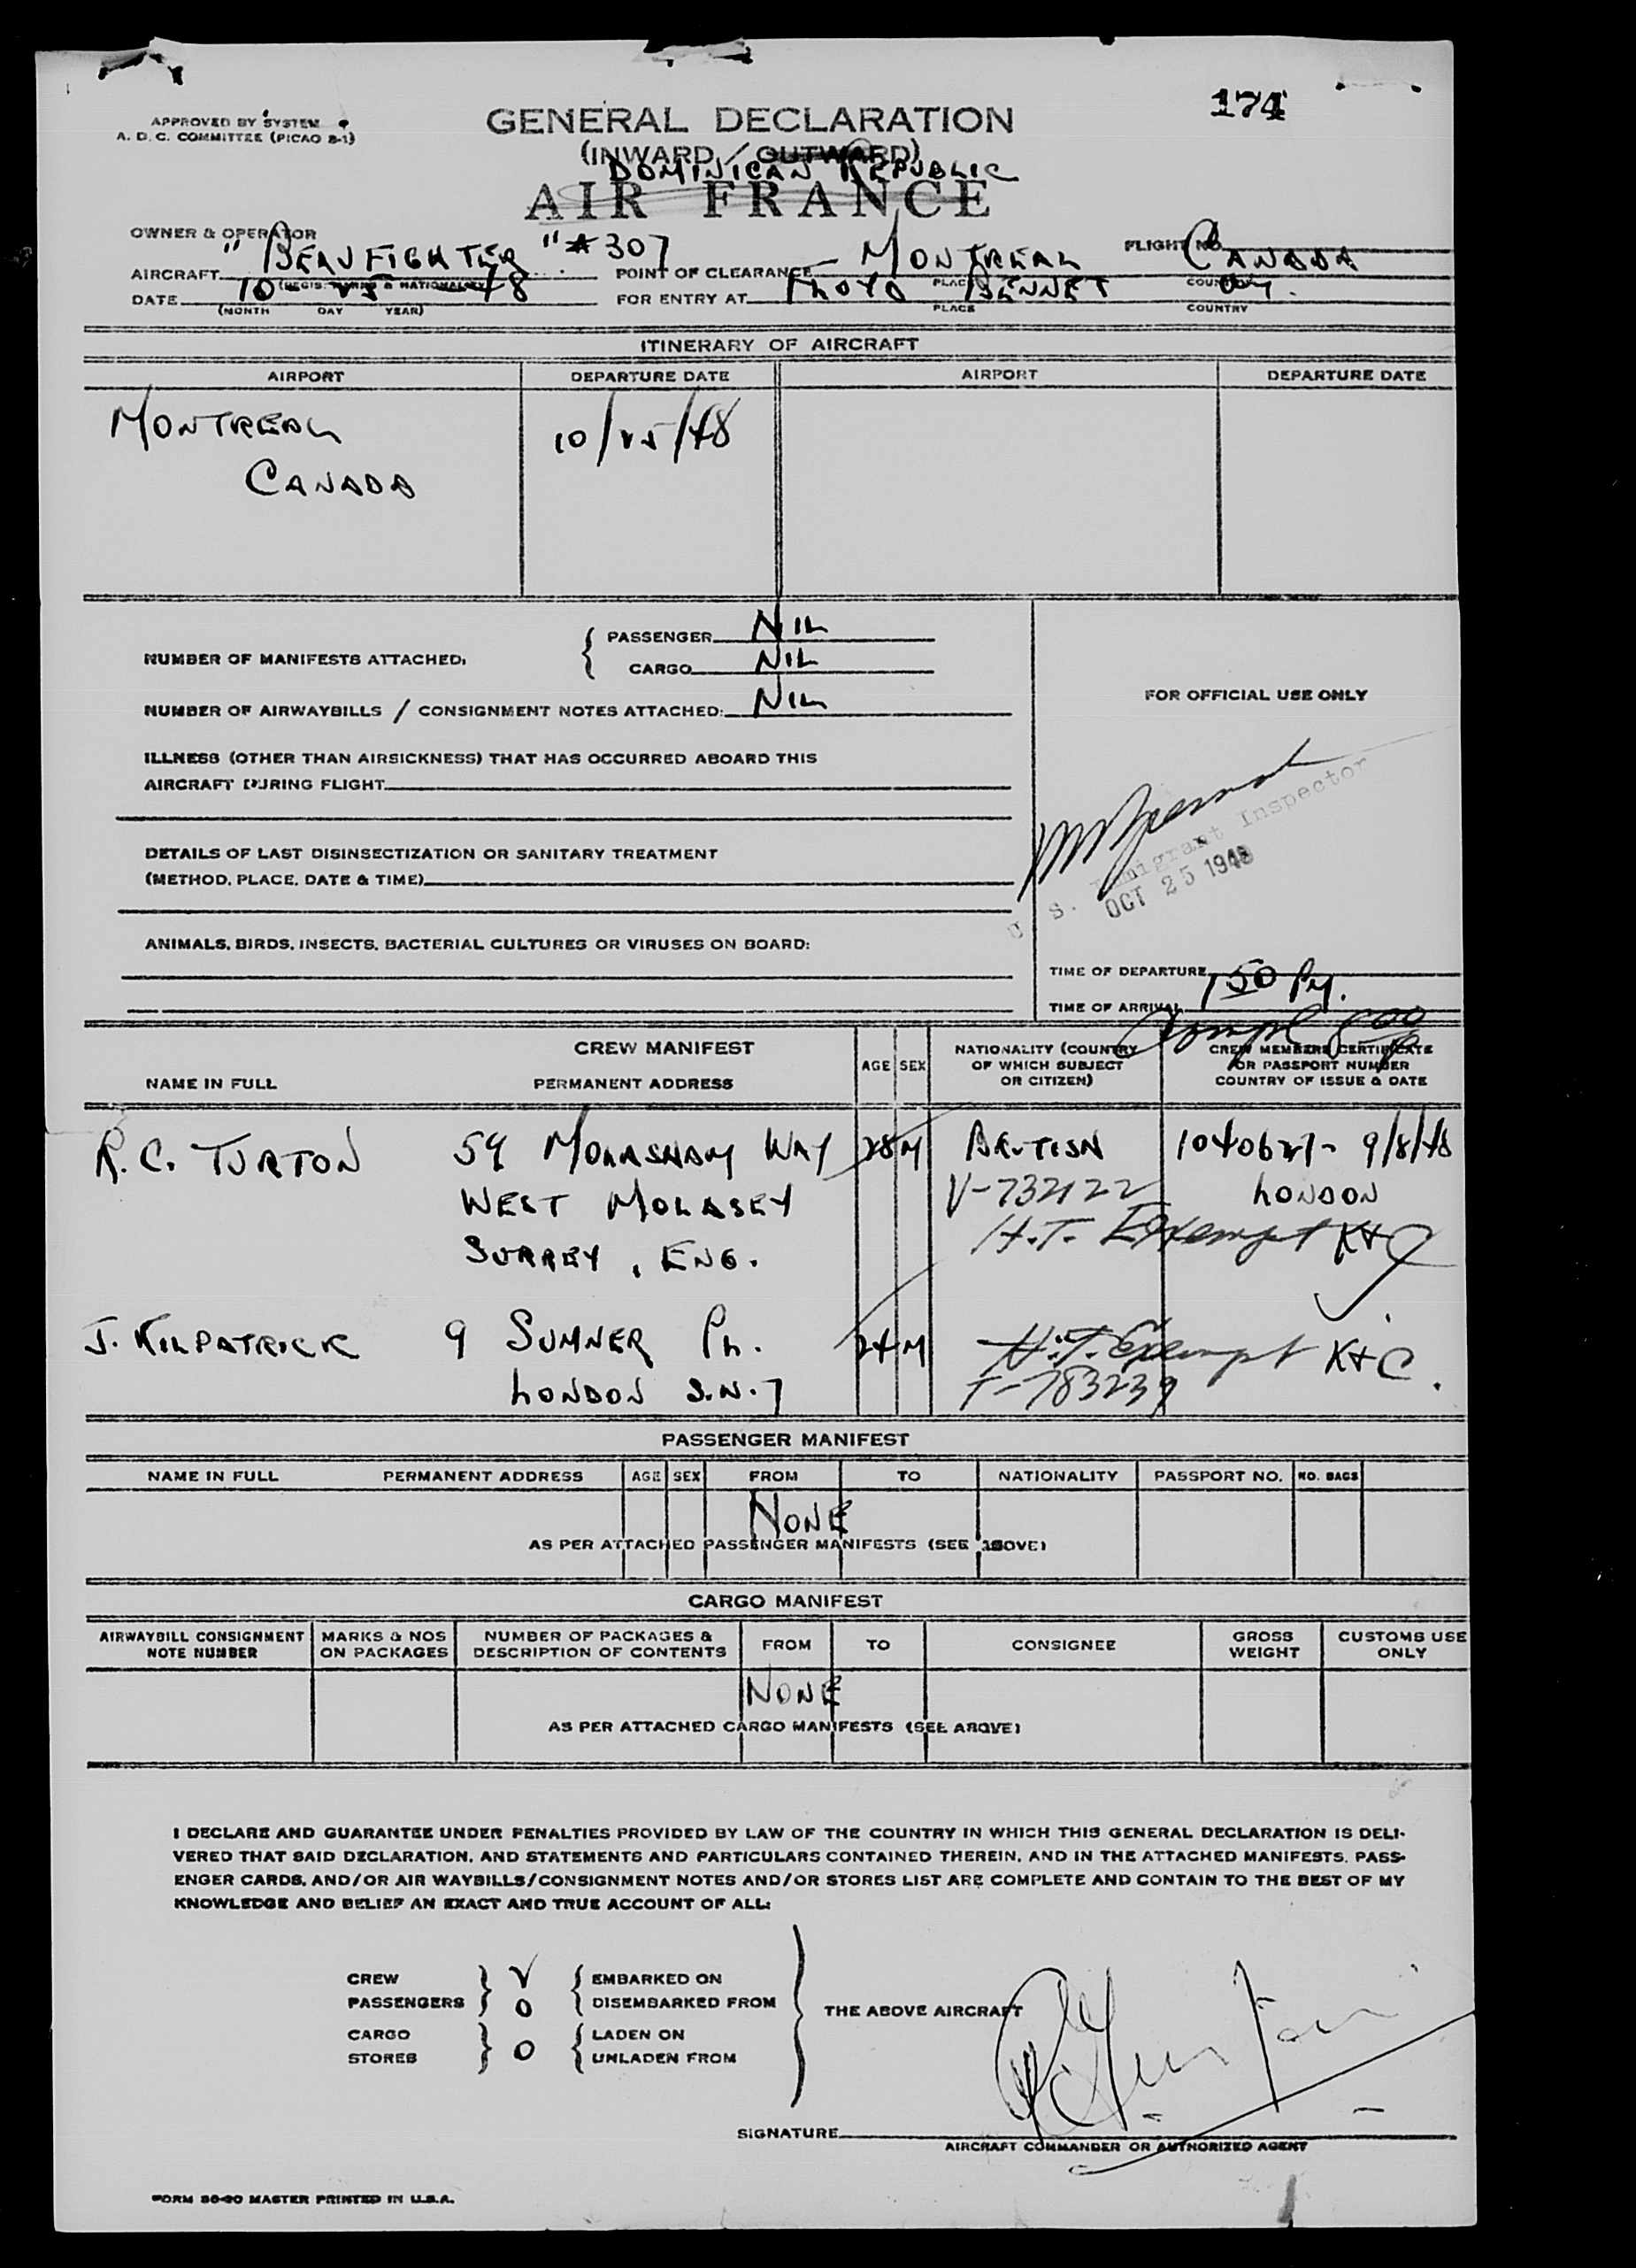 174
APPROVED BY SYSTEM
A. D. C. COMMITTEE (PICAO 8-1)
GENERAL DECLARATION
(INWARD / OUTWARD)
DOMINICAN REPUBLIC
AIR FRANCE
OWNER & OPERATOR
AIRCRAFT "BEAUFIGHTER" #307
(REGIS. MARKS & NATIONALITY)
POINT OF CLEARANCE MONTREAL CANADA
FLIGHT NO.
PLACE COUNTRY
DATE 10 25 48
(MONTH DAY YEAR)
FOR ENTRY AT FLOYD BENNET
PLACE COUNTRY
ITINERARY OF AIRCRAFT
AIRPORT DEPARTURE DATE AIRPORT DEPARTURE DATE
MONTREAL 10/25/48
CANADA
NUMBER OF MANIFESTS ATTACHED:
PASSENGER NIL
CARGO NIL
NUMBER OF AIRWAYBILLS / CONSIGNMENT NOTES ATTACHED: NIL
FOR OFFICIAL USE ONLY
ILLNESS (OTHER THAN AIRSICKNESS) THAT HAS OCCURRED ABOARD THIS
AIRCRAFT DURING FLIGHT
DETAILS OF LAST DISINSECTIZATION OR SANITARY TREATMENT
(METHOD, PLACE, DATE & TIME)
U. S. Immigrant Inspector
OCT 25 1948
ANIMALS, BIRDS, INSECTS, BACTERIAL CULTURES OR VIRUSES ON BOARD:
TIME OF DEPARTURE
TIME OF ARRIVAL 150 PM.
CREW MANIFEST
NAME IN FULL PERMANENT ADDRESS
AGE SEX
NATIONALITY (COUNTRY
OF WHICH SUBJECT
OR CITIZEN)
CREW MEMBERS CERTIFICATE
OR PASSPORT NUMBER
COUNTRY OF ISSUE & DATE
R. C. TURTON 59 MOLASHAM WAY 28 M BRITISH 1040627- 9/8/48
WEST MOLASEY V-732122 LONDON
SURREY, ENG. H.T. Exempt K+C
J. KILPATRICK 9 SUMNER PL. 24 M H.T. Exempt K+C.
LONDON S.W.7 T-783239
PASSENGER MANIFEST
NAME IN FULL PERMANENT ADDRESS AGE SEX FROM TO NATIONALITY PASSPORT NO. NO. BAGS
NONE
AS PER ATTACHED PASSENGER MANIFESTS (SEE ABOVE)
CARGO MANIFEST
AIRWAYBILL CONSIGNMENT
NOTE NUMBER
MARKS & NOS
ON PACKAGES
NUMBER OF PACKAGES &
DESCRIPTION OF CONTENTS
FROM TO CONSIGNEE
GROSS
WEIGHT
CUSTOMS USE
ONLY
NONE
AS PER ATTACHED CARGO MANIFESTS (SEE ABOVE)
I DECLARE AND GUARANTEE UNDER PENALTIES PROVIDED BY LAW OF THE COUNTRY IN WHICH THIS GENERAL DECLARATION IS DELI-
VERED THAT SAID DECLARATION, AND STATEMENTS AND PARTICULARS CONTAINED THEREIN, AND IN THE ATTACHED MANIFESTS, PASS-
ENGER CARDS, AND/OR AIR WAYBILLS/CONSIGNMENT NOTES AND/OR STORES LIST ARE COMPLETE AND CONTAIN TO THE BEST OF MY
KNOWLEDGE AND BELIEF AN EXACT AND TRUE ACCOUNT OF ALL:
CREW V EMBARKED ON
PASSENGERS O DISEMBARKED FROM
THE ABOVE AIRCRAFT
CARGO O LADEN ON
STORES UNLADEN FROM
SIGNATURE
AIRCRAFT COMMANDER OR AUTHORIZED AGENT
FORM 80-90 MASTER PRINTED IN U.S.A.